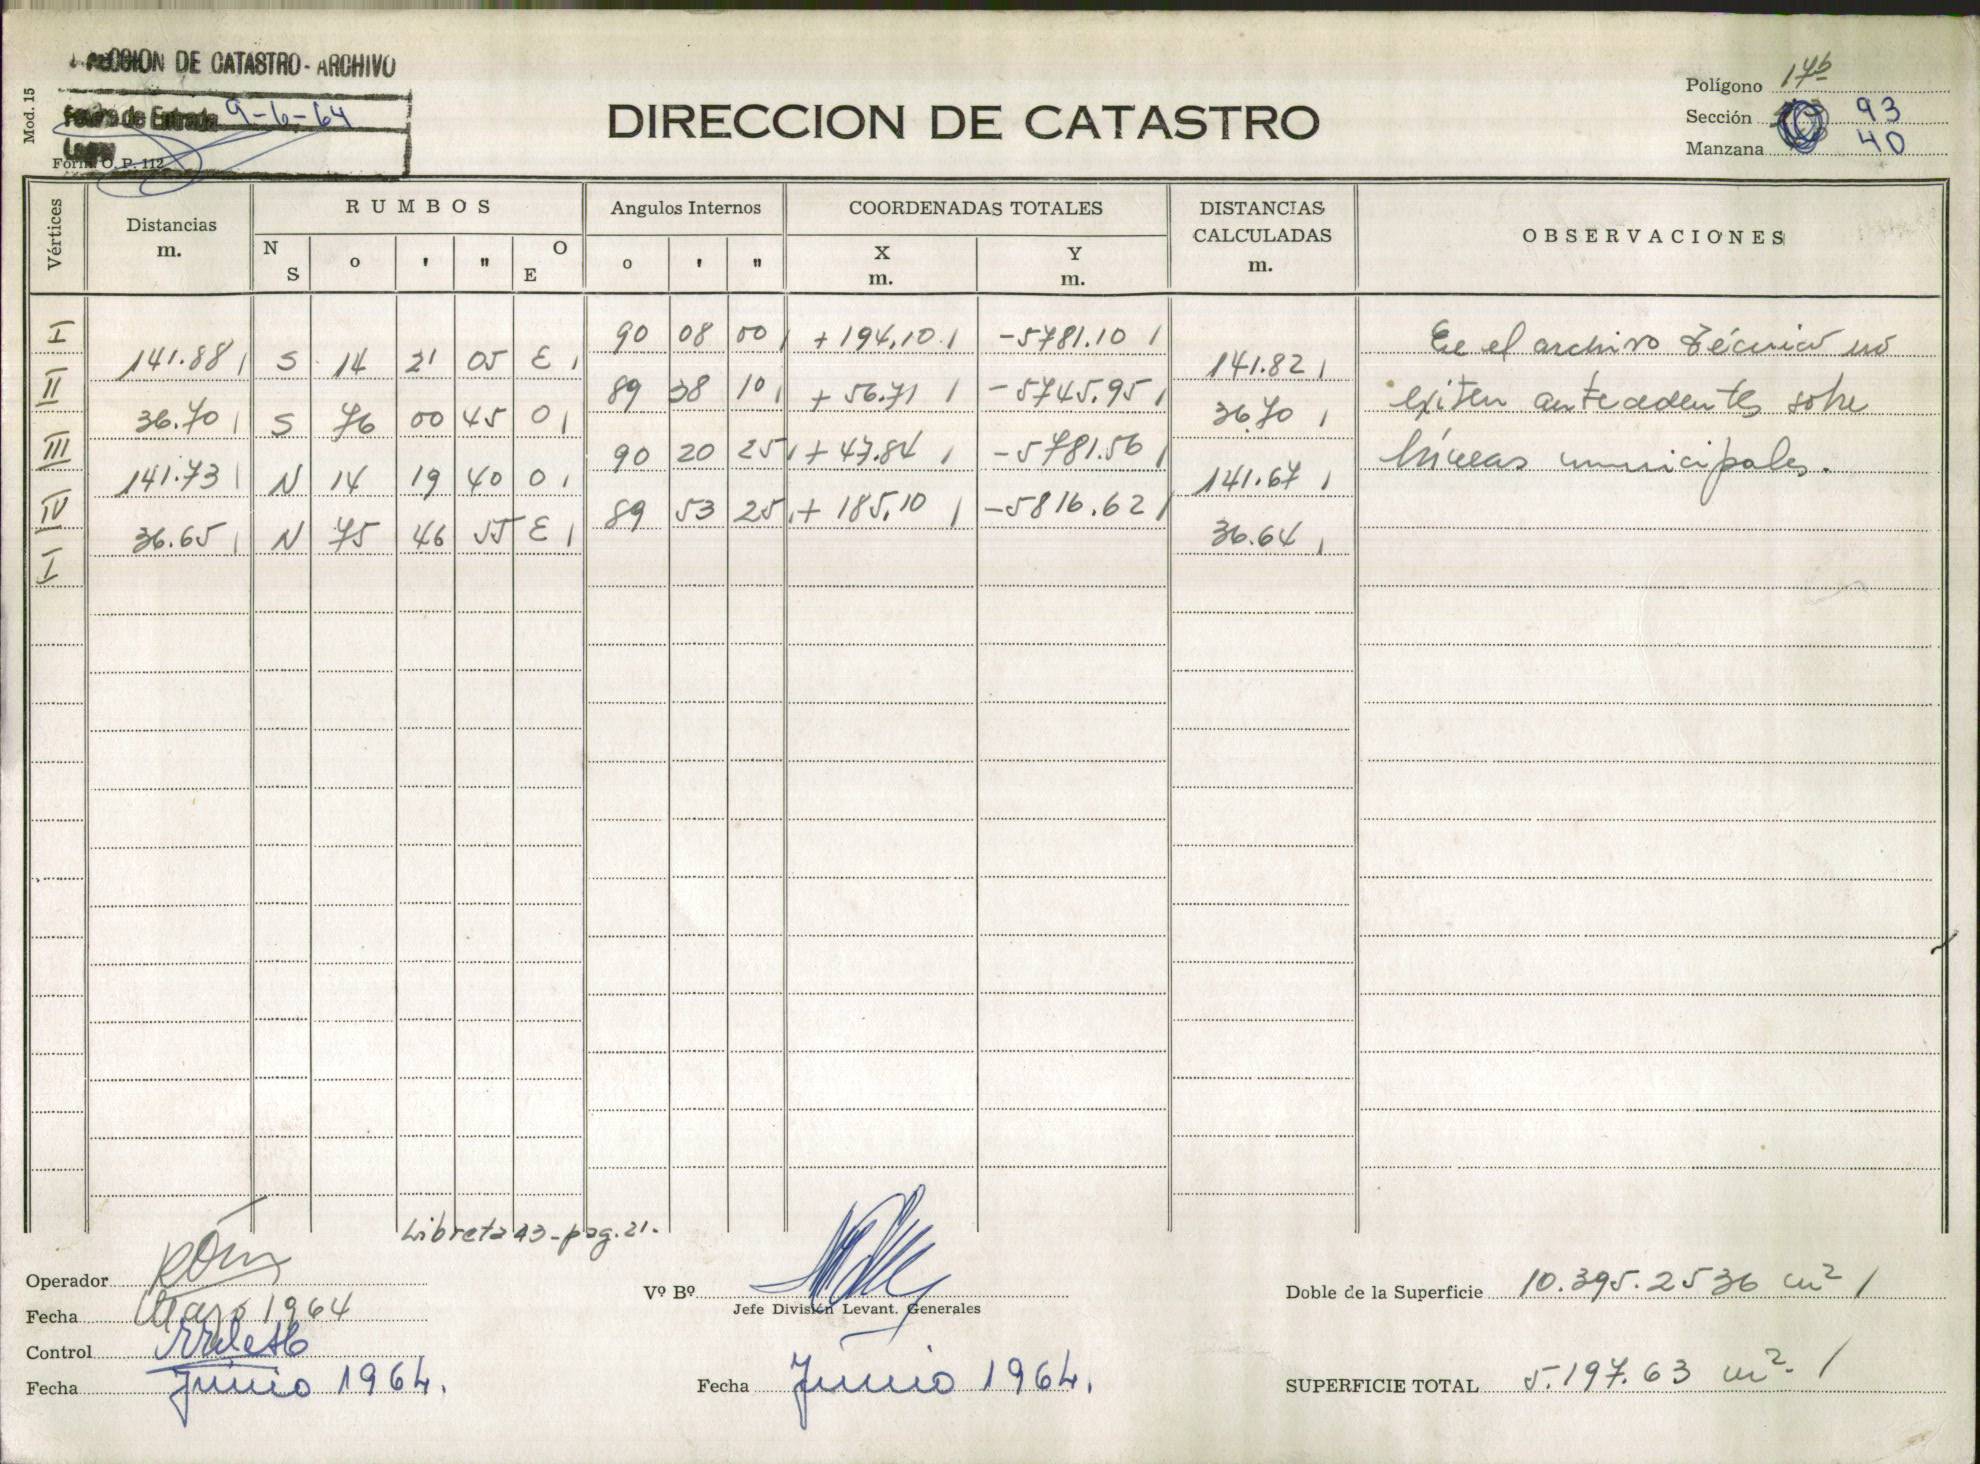 DIRECCION DE CATASTRO - ARCHIVO
Mod. 15
Fecha de Entrada 9-6-64
Form. O. P. 112
DIRECCION DE CATASTRO
Polígono 17b
Sección 93
Manzana 40
Vértices
Distancias
m.
RUMBOS
N
S
o
'
"
O
E
Angulos Internos
o
'
"
COORDENADAS TOTALES
X
m.
Y
m.
DISTANCIAS
CALCULADAS
m.
OBSERVACIONES
I 90 08 00 +194.10 -5781.10
141.88 S 14 21 05 E 141.82
II 89 38 10 +56.71 -5745.95
36.70 S 76 00 45 O 36.70
III 90 20 25 +47.84 -5781.56
141.73 N 14 19 40 O 141.67
IV 89 53 25 +185.10 -5816.62
36.65 N 75 46 55 E 36.64
I
En el archivo técnico no
exiten antecedentes sobre
líneas municipales.
Libreta 43-pag.21.
Operador
Fecha Marzo 1964
Control
Fecha Junio 1964.
Vº Bº
Jefe División Levant. Generales
Fecha Junio 1964.
Doble de la Superficie 10.395.2536 m²
SUPERFICIE TOTAL 5.197.63 m².